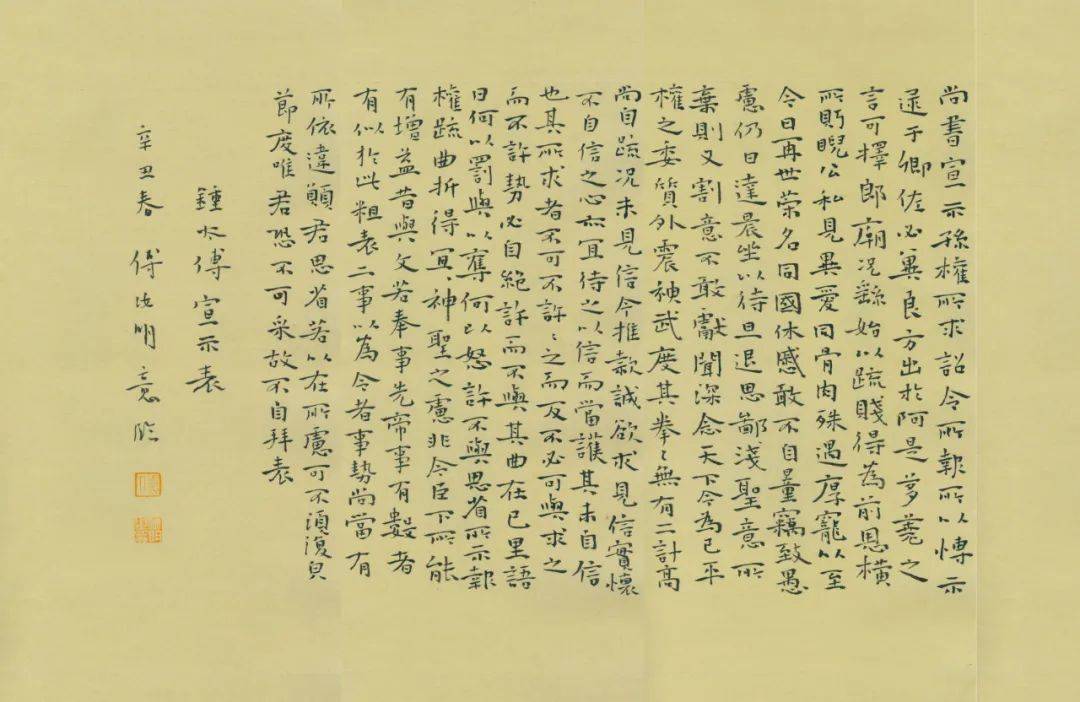 尚書宣示孫權所求詔令所報所以博示
逮于卿佐必冀良方出於阿是芻蕘之
言可擇郎廟況繇始以疏賤得為前恩橫
所眄睨公私見異愛同骨肉殊遇厚寵以至
今日再世榮名同國休慼敢不自量竊致愚
慮仍日達晨坐以待旦退思鄙淺聖意所
棄則又割意不敢獻聞深念天下今為已平
權之委質外震神武度其拳〻無有二計高
尚自疏況未見信今推款誠欲求見信實懷
不自信之心亦宜待之以信而當護其未自信
也其所求者不可不許〻之而反不必可與求之
而不許勢必自絕許而不與其曲在己里語
曰何以罰與以奪何以怒許不與思省所示報
權疏曲折得宜〻神聖之慮非今臣下所能
有增益昔與文若奉事先帝事有數者
有似於此粗表二事以為今者事勢尚當有
所依違願君思省若以在所慮可不須復皃
節度唯君恐不可采故不自拜表
鍾太傅宣示表
辛丑春 傅 明意臨